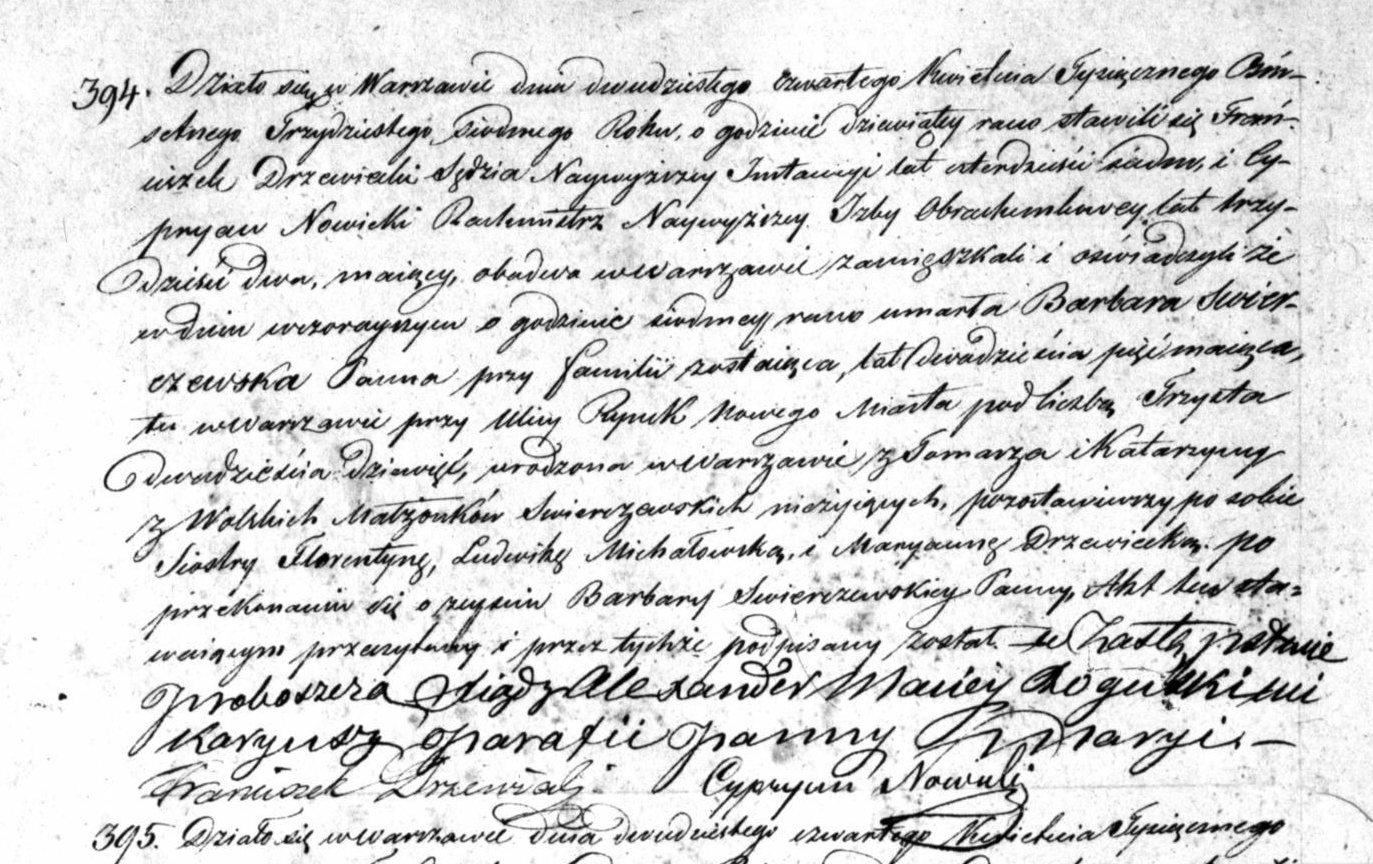 394. Działo się w Warszawie dnia dwudziestego czwartego Kwietnia Tysiącznego Ośm-
setnego Trzydziestego siodmego Roku, o godzinie dziewiątey rano stawili się Fran-
ciszek Drzewiecki Sędzia Naywyższey Instancyi lat czterdzieści siedm, i Cy-
pryan Nowicki Rachmistrz Naywyższey Izby Obrachunkowey lat trzy-
dzieści dwa, maiący, obadwa w Warszawie zamięszkali i oświadczyli że
w dniu wczorayszym o godzinie siodmey rano umarła Barbara Swier-
czewska Panna przy familii zostaiąca, lat dwadzieścia pięć maiąca,
tu w Warszawie przy Ulicy Rynek Nowego Miasta pod liczbą Trzysta
dwadzieścia dziewięć, urodzona w Warszawie z Tomasza i Katarzyny
z Wolskich Małżonków Swierczewskich nieżyiących, pozostawiwszy po sobie
Siostry Florentynę, Ludwikę Michałowską, i Maryannę Drzewiecką. po
przekonaniu się o zeysciu Barbary Swierczewskiey Panny, Akt ten sta=
waiącym przeczytany i przez tychże podpisany został. Zastępstwie
Proboszcza Xiądz Alexander Maciey Rogulski wi
karyusz Parafii Panny Maryi. —
Franciszek Drzewiecki Cypryan Nowicki
395. Działo się w Warszawie dnia dwudziestego czwartego Kwietnia Tysiącznego